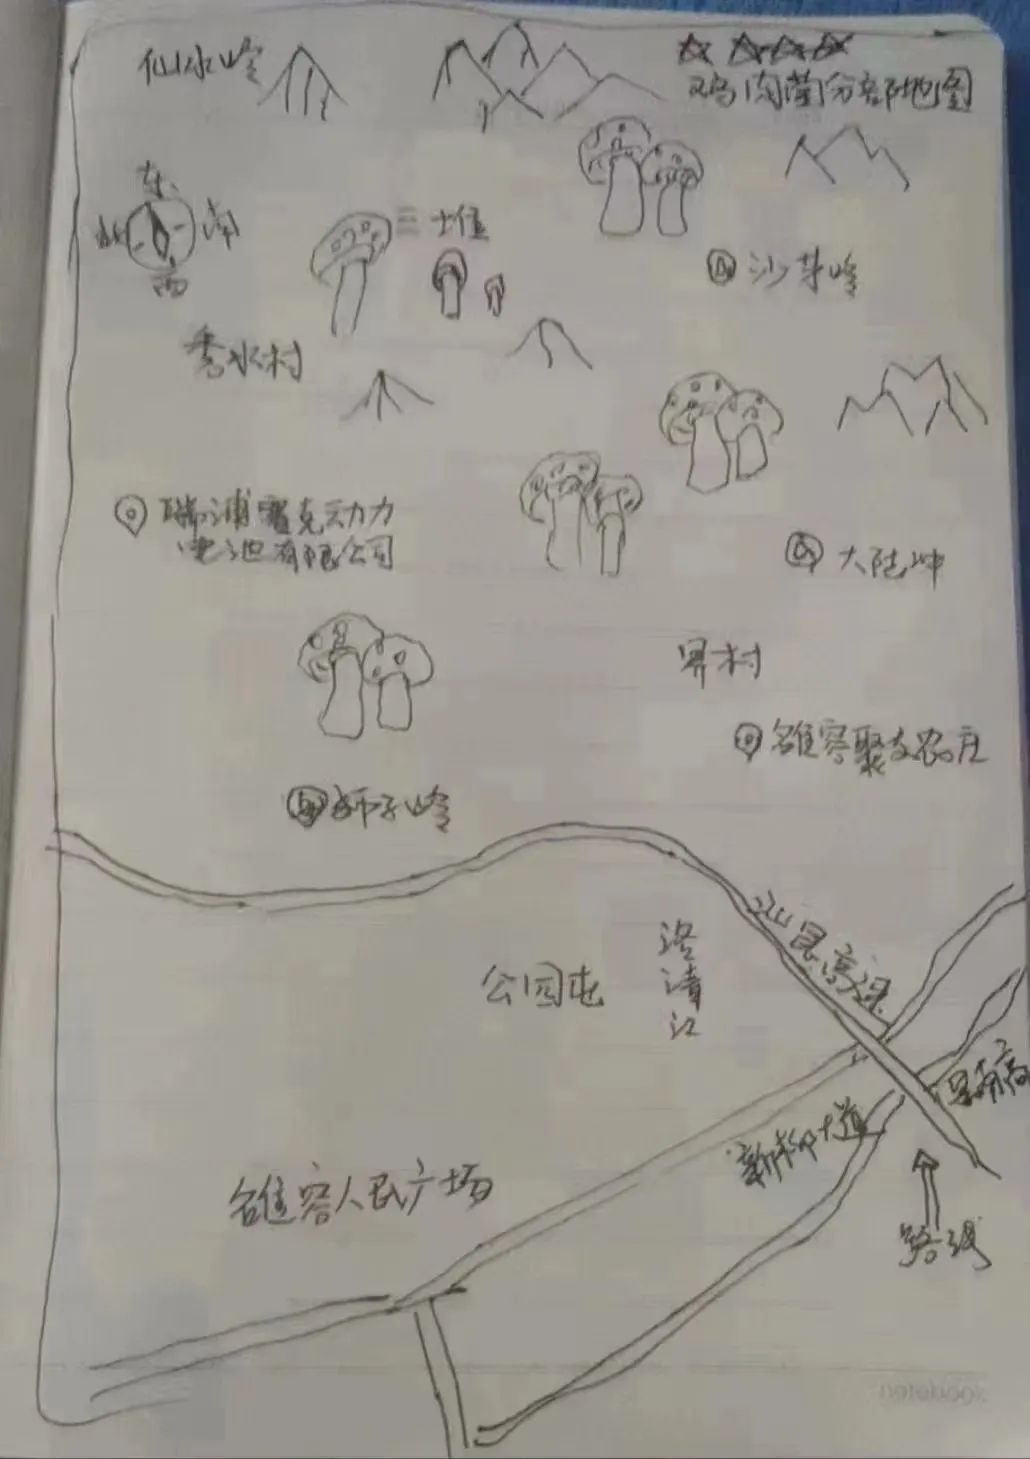 仙水岭
鸡肉菌分部地图
东
北
南
西
三堆
沙芽岭
香水村
瑞浦赛克动力
电池有限公司
大陆冲
界村
雒容聚友农庄
狮子岭
汕昆高速
洛清江
公园屯
新柳大道
雒容人民广场
路线